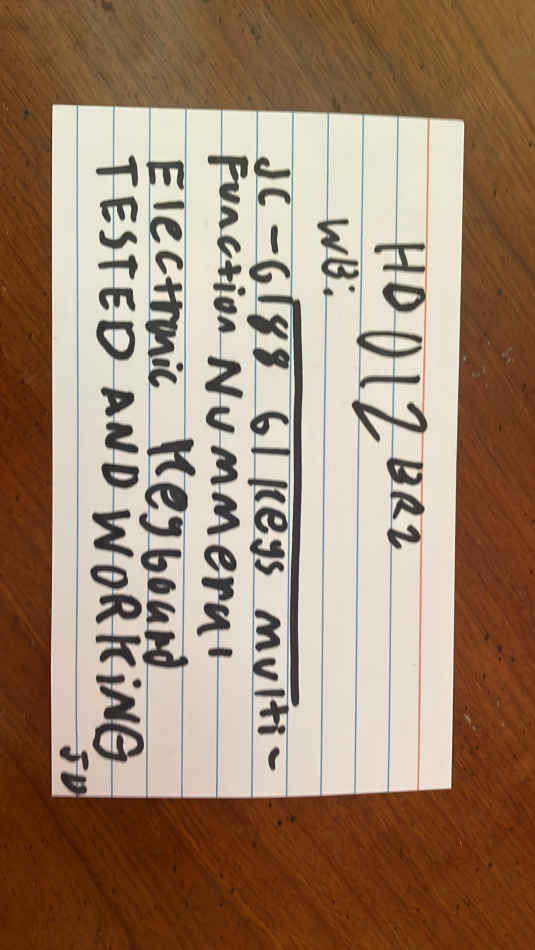 HD 012 BR2
WB:
JC-6188 61 Keys multi-
Function Nummeral
Electronic Keyboard
TESTED AND WORKING
JD